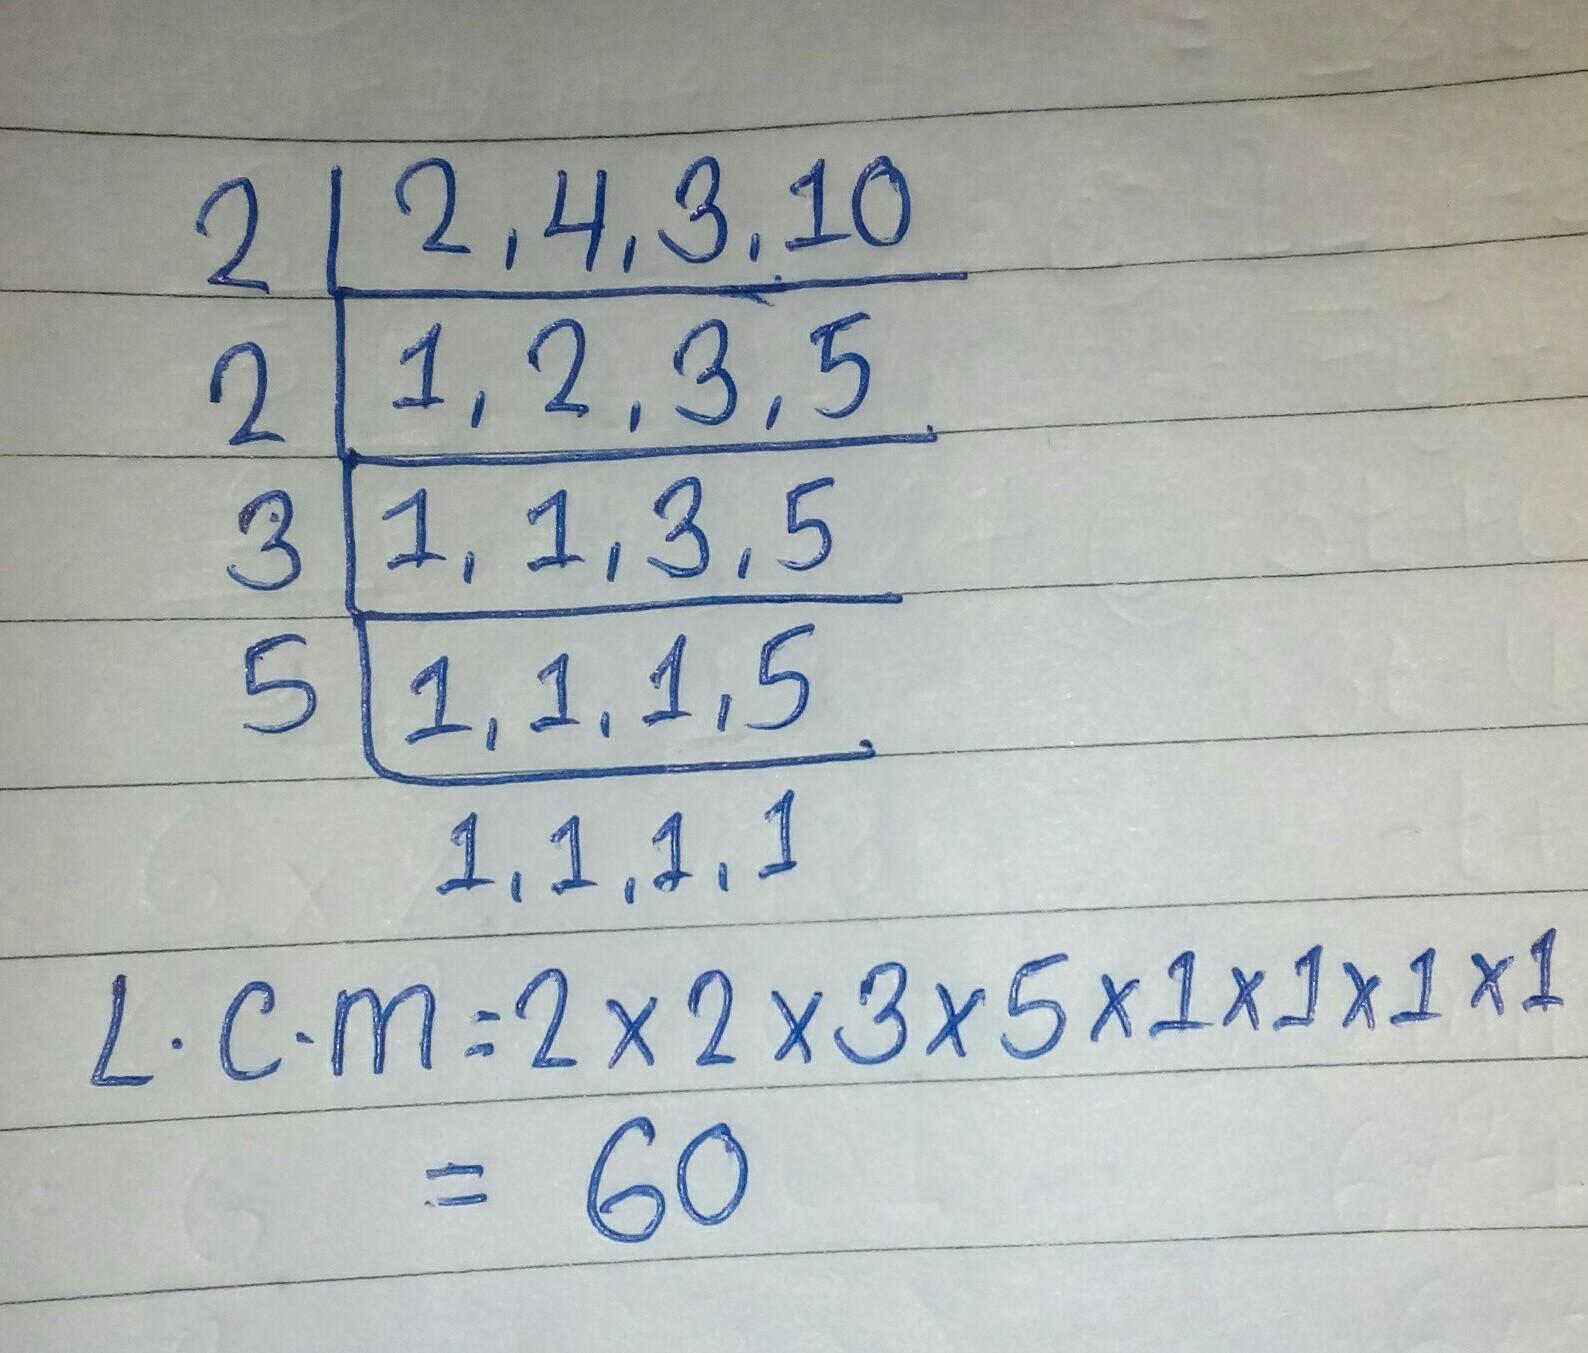 2 | 2, 4, 3, 10
2 | 1, 2, 3, 5
3 | 1, 1, 3, 5
5 | 1, 1, 1, 5
1, 1, 1, 1
L.C.M = 2 x 2 x 3 x 5 x 1 x 1 x 1 x 1
= 60